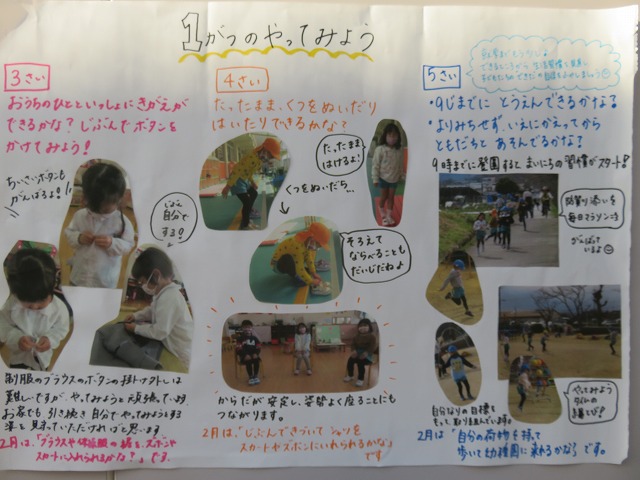 1がつのやってみよう
3さい
おうちのひとといっしょにきがえが
できるかな？じぶんでボタンを
かけてみよう！
ちいさいボタンも
がんばるよ！
自分で
する！
制服のブラウスのボタンの掛け外しは
難しいですが、やってみようと頑張っています
お家でも、引き続き自分でやってみようとする
姿を見守っていただければと思います。
2月は、「ブラウスや体操服の裾を、ズボンや
スカートに入れられるかな？」です
4さい
たったまま、くつをぬいだり
はいたりできるかな？
たったまま
はけるよ！
くつをぬいだら…
そろえて
ならべることも
だいじだね
からだが安定し、姿勢よく座ることにも
つながります。
2月は「じぶんできづいてシャツを
スカートやズボンにいれられるかな」
です
5さい
・9じまでに とうえんできるかな？
・よりみちせず、いえにかえってから
ともだちと あそんでるかな？
9時までに登園すると まいにちの習慣がスタート！
毎日マラソン
がんばって
いるよ
やってみよう
自分なりの目標を
もって取り組んでいます。
2月は「自分の荷物を持って
歩いて幼稚園に来れるかな？」です。